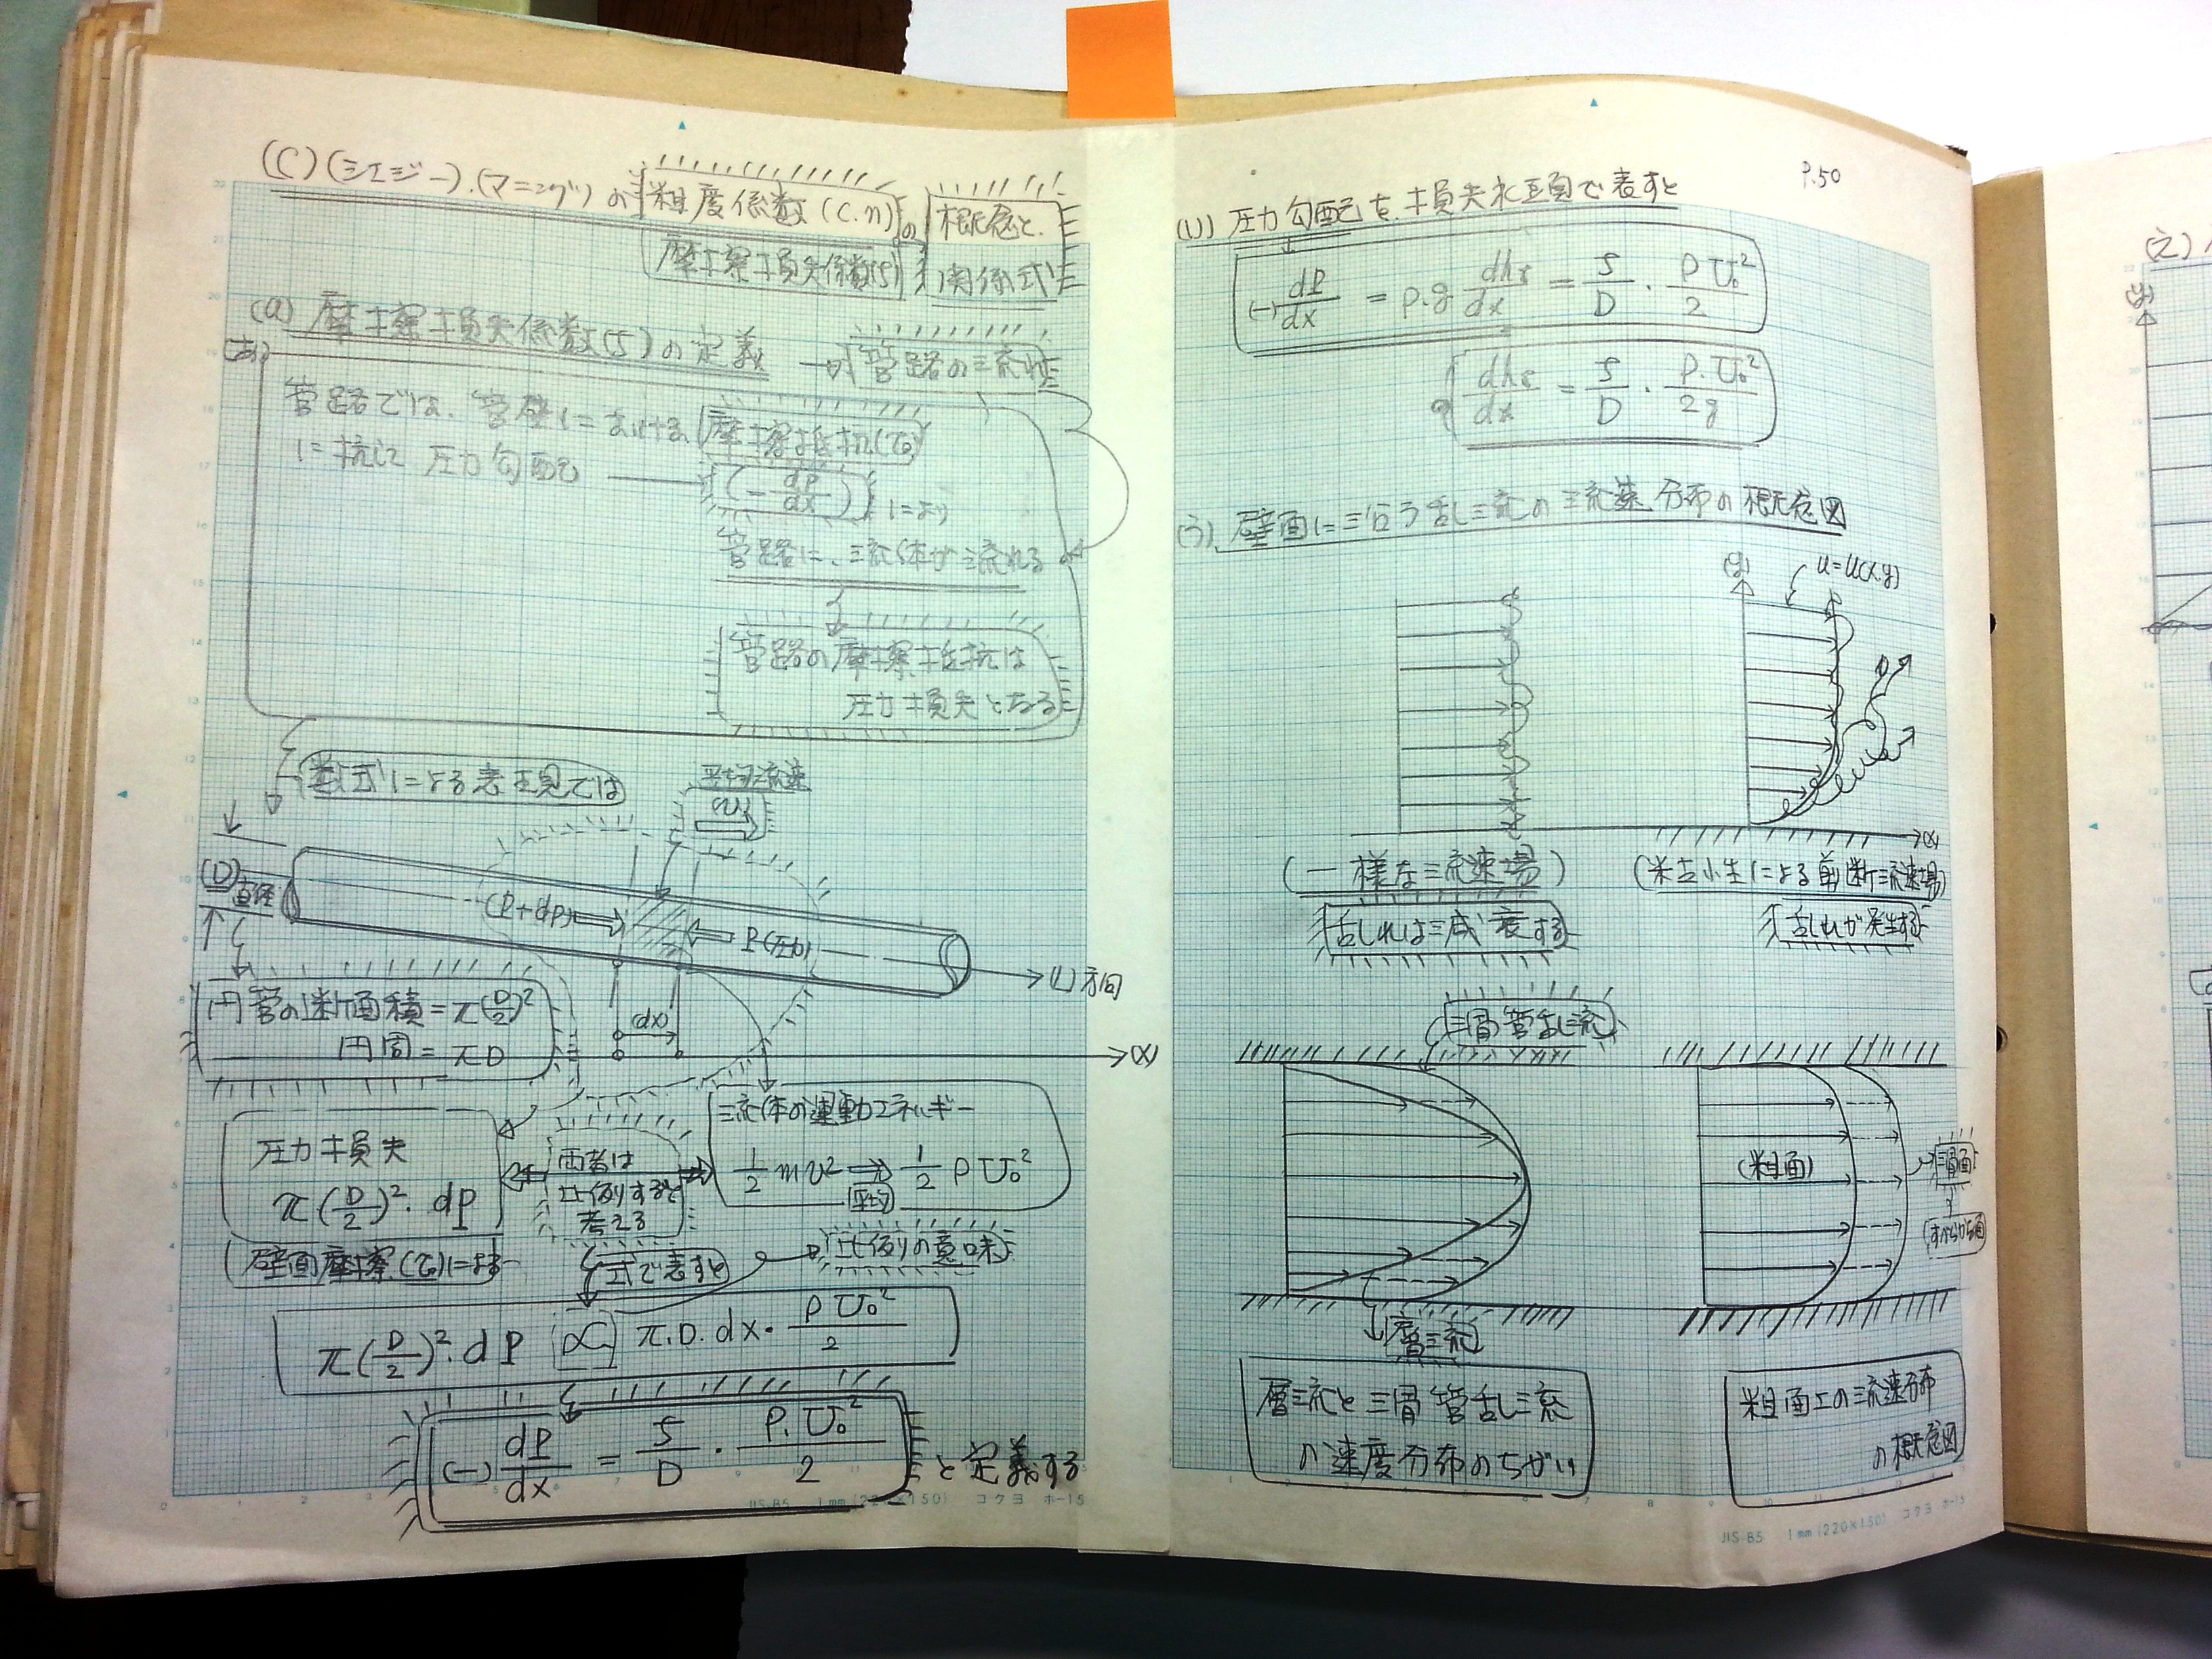 (C) (シエジー)・(マニング)の 粗度係数 (C.n) の 概念と、
摩擦損失係数(ζ) 関係式
(a) 摩擦損失係数(ζ)の定義 → 管路の流れ
(あ)
管路では、管壁における 摩擦抵抗(τ₀)
に抗して 圧力勾配 (-dP/dx) により
管路に、流体が流れる
管路の摩擦抵抗は
圧力損失となる
数式による表現では
平均流速
(U₀)
(D)
直径
(P+dP)
P(圧力)
(L)方向
(dx)
(x)
円管の断面積=π(D/2)²
円周=π.D
圧力損失
π(D/2)²・dP
壁面摩擦(τ₀)による
両者は
比例すると
考える
流体の運動エネルギー
1/2 mv² ⇒ 1/2 ρU₀²
平均
式で表すと
比例の意味
π(D/2)²・dP ∝ π.D.dx・ρU₀²/2
(-)dP/dx = ζ/D・ρ.U₀²/2 と定義する
JIS-B5 1mm(220×150) コクヨ ホ-15
P.50
(い) 圧力勾配を、損失水頭で表すと
(-)dP/dx = ρ.g dhs/dx = ζ/D・ρU₀²/2
dhs/dx = ζ/D・ρ.U₀²/2g
(う) 壁面に沿う乱流の流速分布の概念図
(y)
u=u(x.y)
(x)
(一様な流速場)
(粘性による剪断流速場)
乱れは減衰する
乱れが発生する
滑管乱流
(粗面)
滑面
層流
層流と滑管乱流
の速度分布のちがい
粗面上の流速分布
の概念図
JIS-B5 1mm(220×150) コクヨ ホ-15
(y)